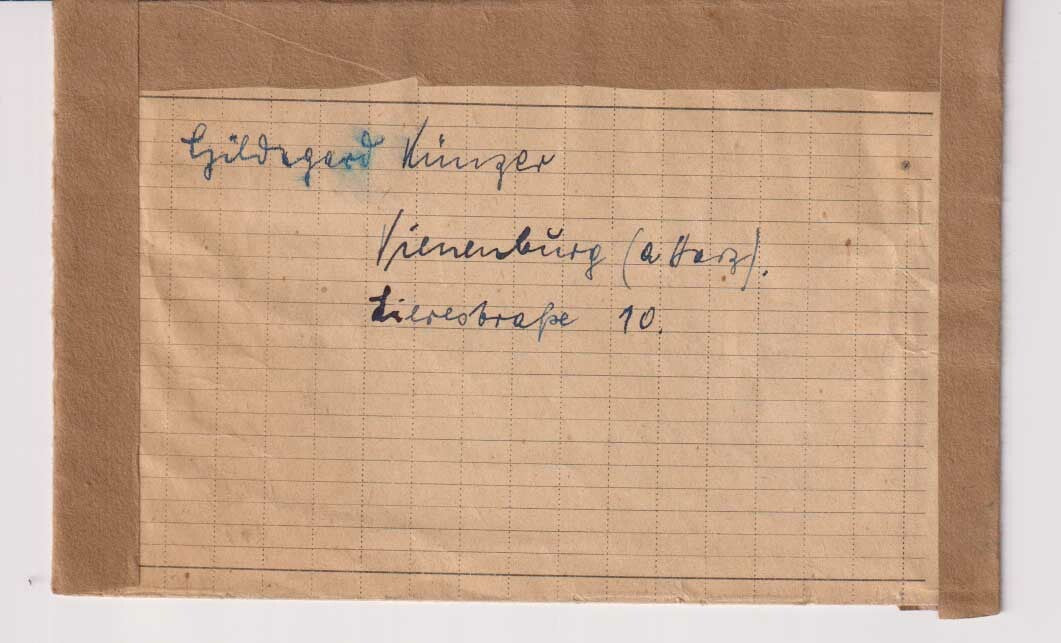 Hildegard Künzer
Vienenburg (a. Harz).
Lierestraße 10.